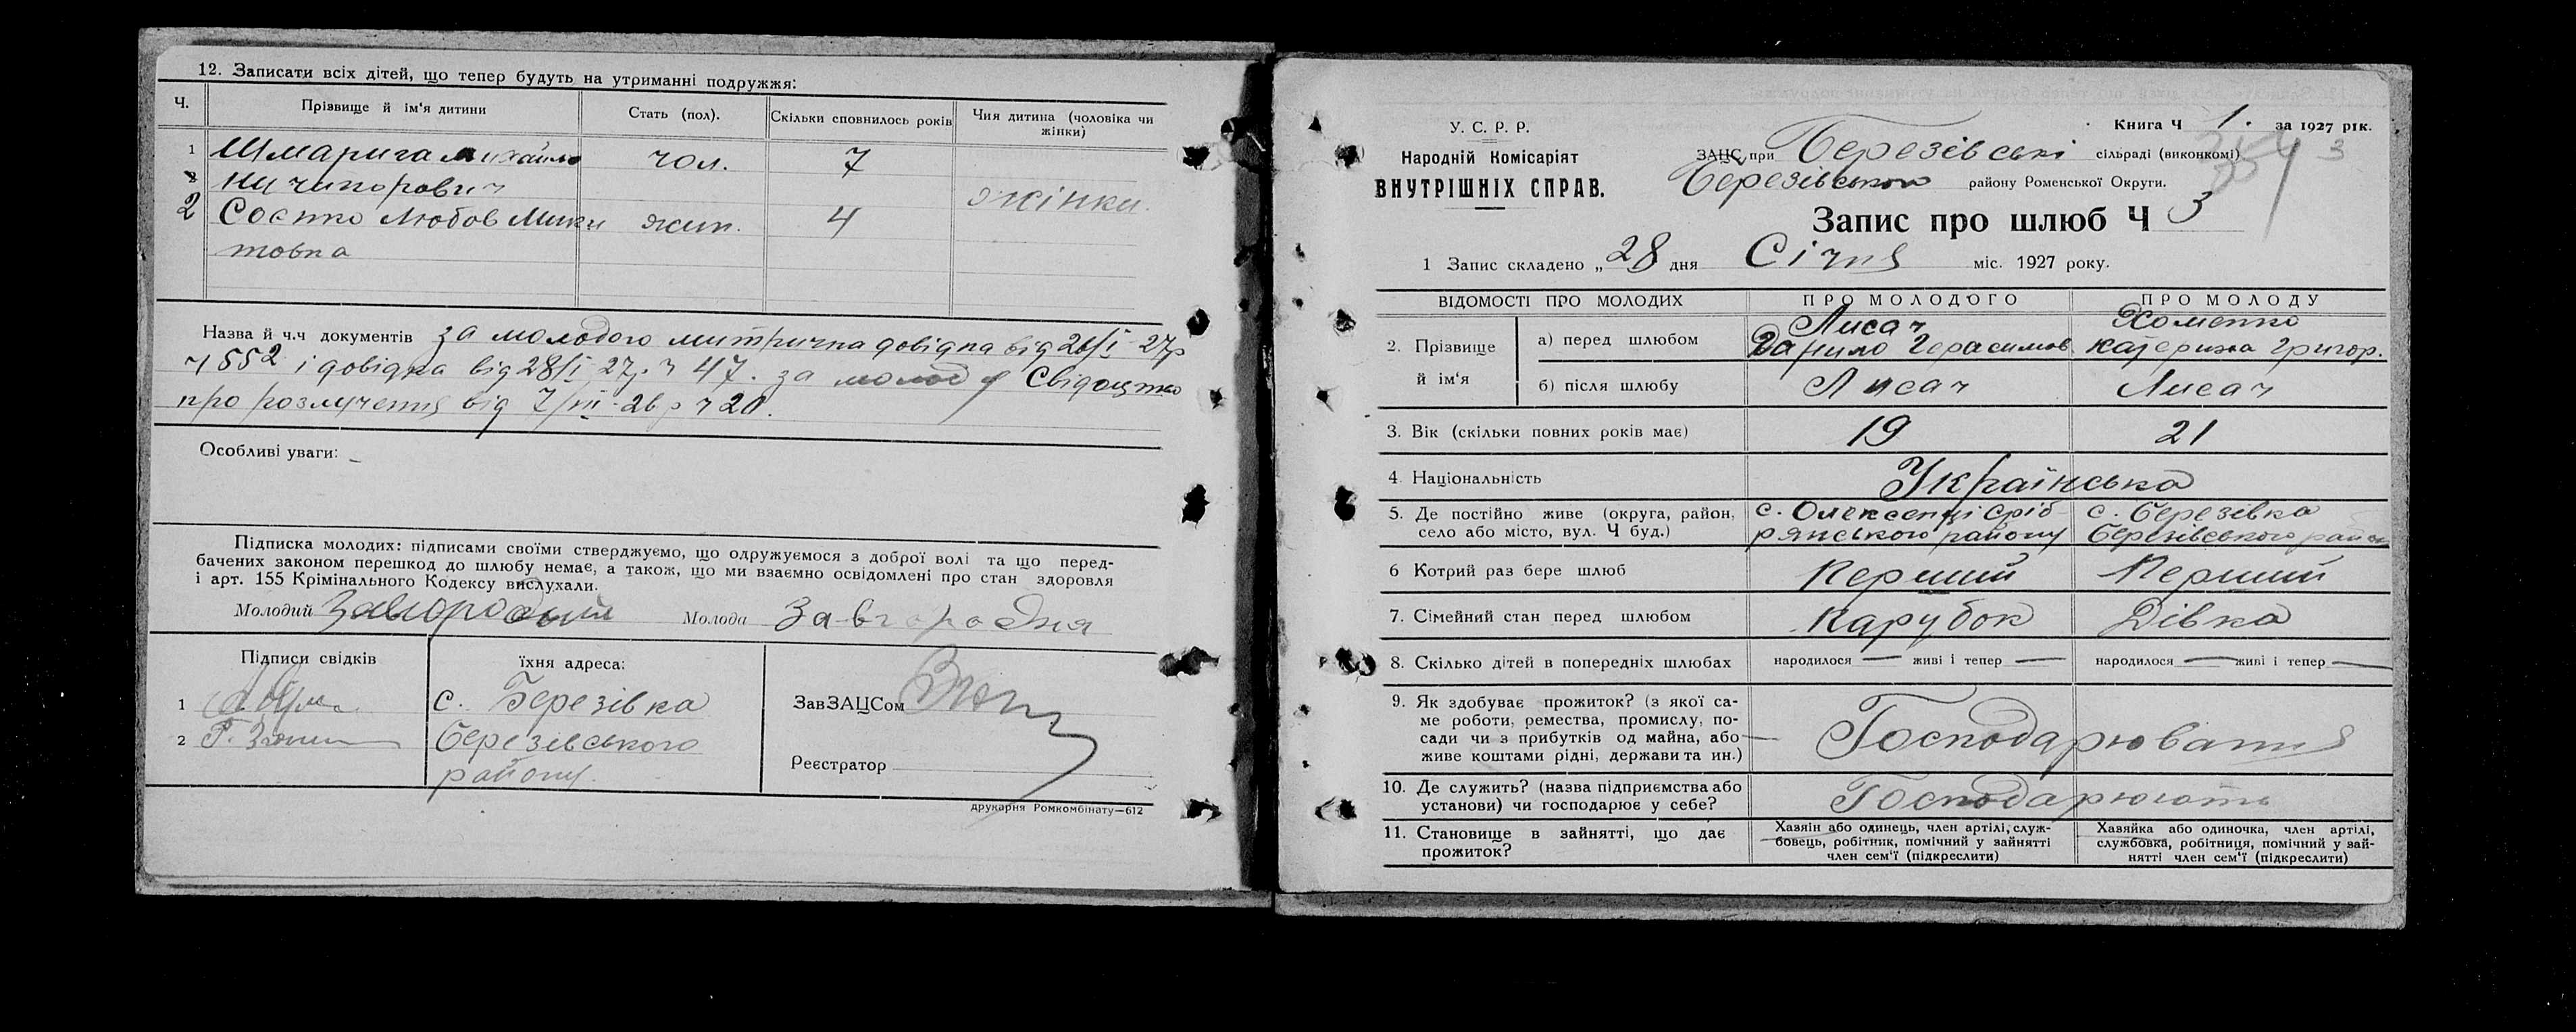 12. Записати всіх дітей, що тепер будуть на утриманні подружжя:
Ч. Прізвище й ім'я дитини Стать (пол). Скільки сповнилось років Чия дитина (чоловіка чи жінки)
1 Шмарига Михайло чол. 7
Ничипорович жінки.
2 Соєнко Любов Мики жин. 4
товна
Назва й ч.ч документів за молодого митрична довідка від 26/I 27р
ч 552 і довідка від 28/I 27р ч 47. за молоду Свідоцтво
про розлучення від 7/III-26р ч 20.
Особливі уваги: –
Підписка молодих: підписами своїми стверджуємо, що одружуємося з доброї волі та що перед-
бачених законом перешкод до шлюбу немає, а також, що ми взаємно освідомлені про стан здоровля
і арт. 155 Крімінального Кодексу вислухали.
Молодий Завгородний Молода Завгородня
Підписи свідків їхня адреса:
1 с. Березівка ЗавЗАЦСом
2 Г. Березівського
району. Реєстратор
друкарня Ромкомбінату—612
У. С. Р. Р.
Народній Комісаріят
ВНУТРІШНІХ СПРАВ.
Книга Ч 1. за 1927 рік.
354 3
ЗАЦС при Березівські сільраді (виконкомі)
Березівського району Роменської Округи.
Запис про шлюб Ч 3
1 Запис складено „28 дня Січня міс. 1927 року.
ВІДОМОСТІ ПРО МОЛОДИХ ПРО МОЛОДОГО ПРО МОЛОДУ
2. Прізвище й ім'я а) перед шлюбом Лисач Данило Герасимов. Хоменко Катерина Григор.
б) після шлюбу Лисач Лисач
3. Вік (скільки повних років має) 19 21
4. Національність Українська
5. Де постійно живе (округа, район, с. Олексенці Сріб- с. Березівка
село або місто, вул. Ч буд.) рянського району Березівського район
6 Котрий раз бере шлюб Перший Перший
7. Сімейний стан перед шлюбом Парубок Дівка
8. Скілько дітей в попередніх шлюбах народилося — живі і тепер — народилося — живі і тепер —
9. Як здобуває прожиток? (з якої са-
ме роботи, ремества, промислу, по-
сади чи з прибутків од майна, або Господарювання
живе коштами рідні, держави та ин.)
10. Де служить? (назва підприємства або
установи) чи господарює у себе? Господарюють
11. Становище в зайнятті, що дає прожиток?
Хазяїн або одинець, член артілі, служ-
бовець, робітник, помічний у зайнятті
член сем'ї (підкреслити)
Хазяйка або одиночка, член артілі,
службовка, робітниця, помічний у зай-
нятті член сем'ї (підкреслити)